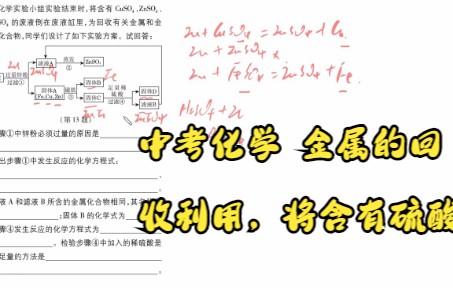 化学实验小组实验结束时,将含有 CuSO₄、ZnSO₄、
SO₄ 的废液倒在废液缸里,为回收有关金属和金
化合物,同学们设计了如下实验方案。试回答:
过量锌粉
过滤①
滤液A
蒸发
②
ZnSO₄
固体A
(Fe、Cu、Zn)
磁铁
③
固体B
固体C
足量稀
硫酸
过滤④
固体D
滤液B
(第 13 题)
Zn + CuSO₄ = ZnSO₄ + Cu
Zn + ZnSO₄ ×
Zn + FeSO₄ = ZnSO₄ + Fe
H₂SO₄ + Zn
步骤①中锌粉必须过量的原因是
出步骤①中发生反应的化学方程式:
液 A 和滤液 B 所含的金属化合物相同,其名
;固体 B 的化学式为
步骤④发生反应的化学方程式为
。检验步骤④中加入的稀硫酸是
足量的方法是
中考化学 金属的回
收利用，将含有硫酸